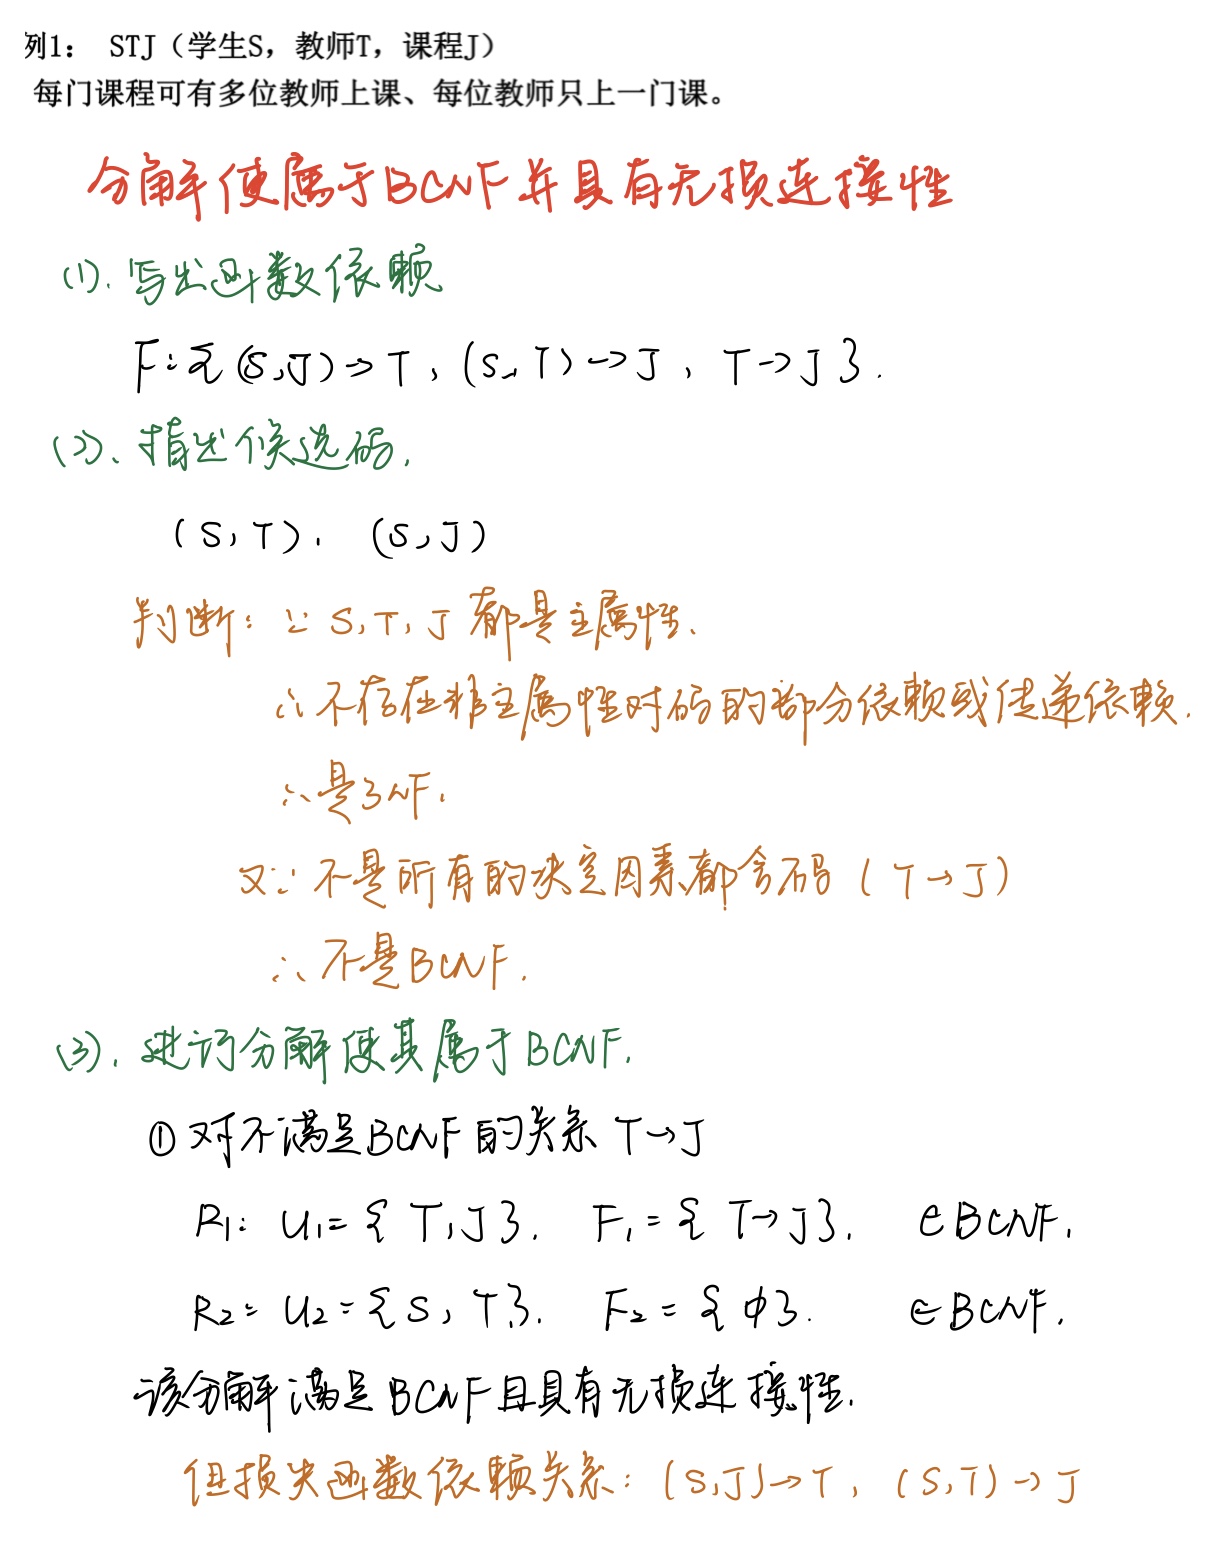 列1： STJ（学生S，教师T，课程J）
每门课程可有多位教师上课、每位教师只上一门课。
分解使属于BCNF并具有无损连接性
(1). 写出函数依赖
F:{(S,J)→T, (S,T)→J, T→J}.
(2). 指出候选码.
(S,T). (S,J)
判断: ∵ S,T,J 都是主属性.
∴ 不存在非主属性对码的部分依赖或传递依赖.
∴ 是3NF.
又∵ 不是所有的决定因素都含码 (T→J)
∴ 不是BCNF.
(3). 进行分解使其属于BCNF.
① 对不满足BCNF的关系 T→J
R1: U1={T,J}. F1={T→J}. ∈BCNF.
R2: U2={S,T}. F2={φ}. ∈BCNF.
该分解满足BCNF且具有无损连接性.
但损失函数依赖关系: (S,J)→T, (S,T)→J